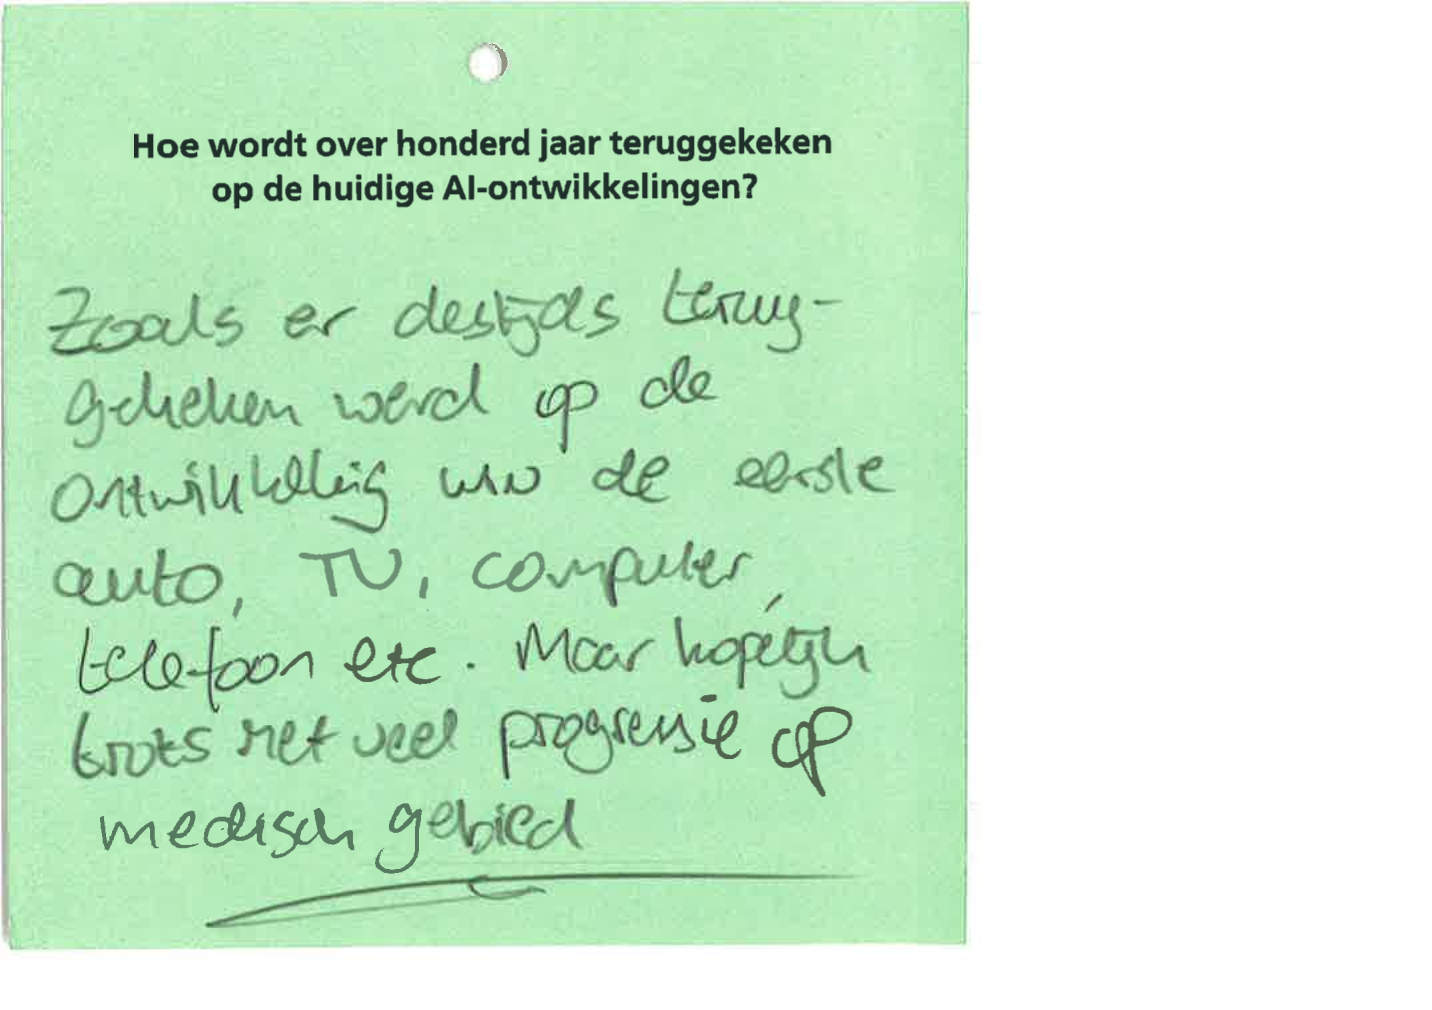 Hoe wordt over honderd jaar teruggekeken
op de huidige AI-ontwikkelingen?
Zoals er destijds terug-
gekeken werd op de
ontwikkeling van de eerste
auto, TV, computer,
telefoon etc. Maar hopelijk
trots met veel progressie op
medisch gebied